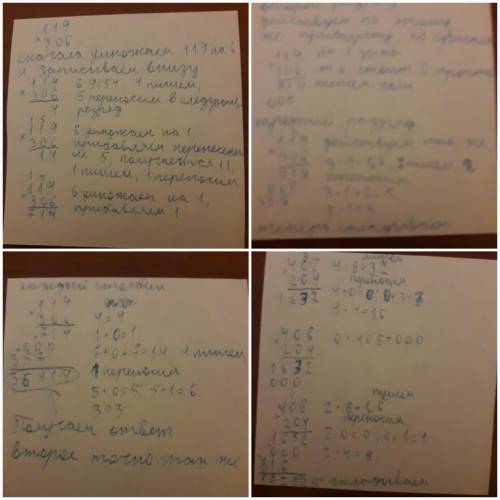 119
× 306
сначала умножаем 119 на 6
и записываем внизу
119 6·9=54 4 пишем,
× 306 5 переносим в следующ.
4 разряд
15
119 6 умножаем на 1,
× 306 прибавляем перенесен
14 не 5, получается 11,
1 пишем, 1 переносим
15
119 6 умножаем на 1,
× 306 прибавляем 1
714
действуем по этому
же
119 на 1 знак
306
714 пишем
000
третий разряд
119 действуем так же
306
714 переносим
000 3·1+2=5
357 3·1=3
теперь складываем
каждый столбик
119
× 306 4=4
714 1+0=1
+000 7+0+7=14, 4 пишем,
357 1 переносим
36414 5+0=5, 5+1=6
3=3
Получаем ответ
второе точно так же
пишем
408 4·8=32
× 204 переносим
1632 4·0=0; 0+3=3
4·4=16
408 0·408=000
× 204
1632
000
пишем
408 2·8=16
× 204 переносим
1632 2·0=0; 0+1=1
000 2·4=8
816
складываем